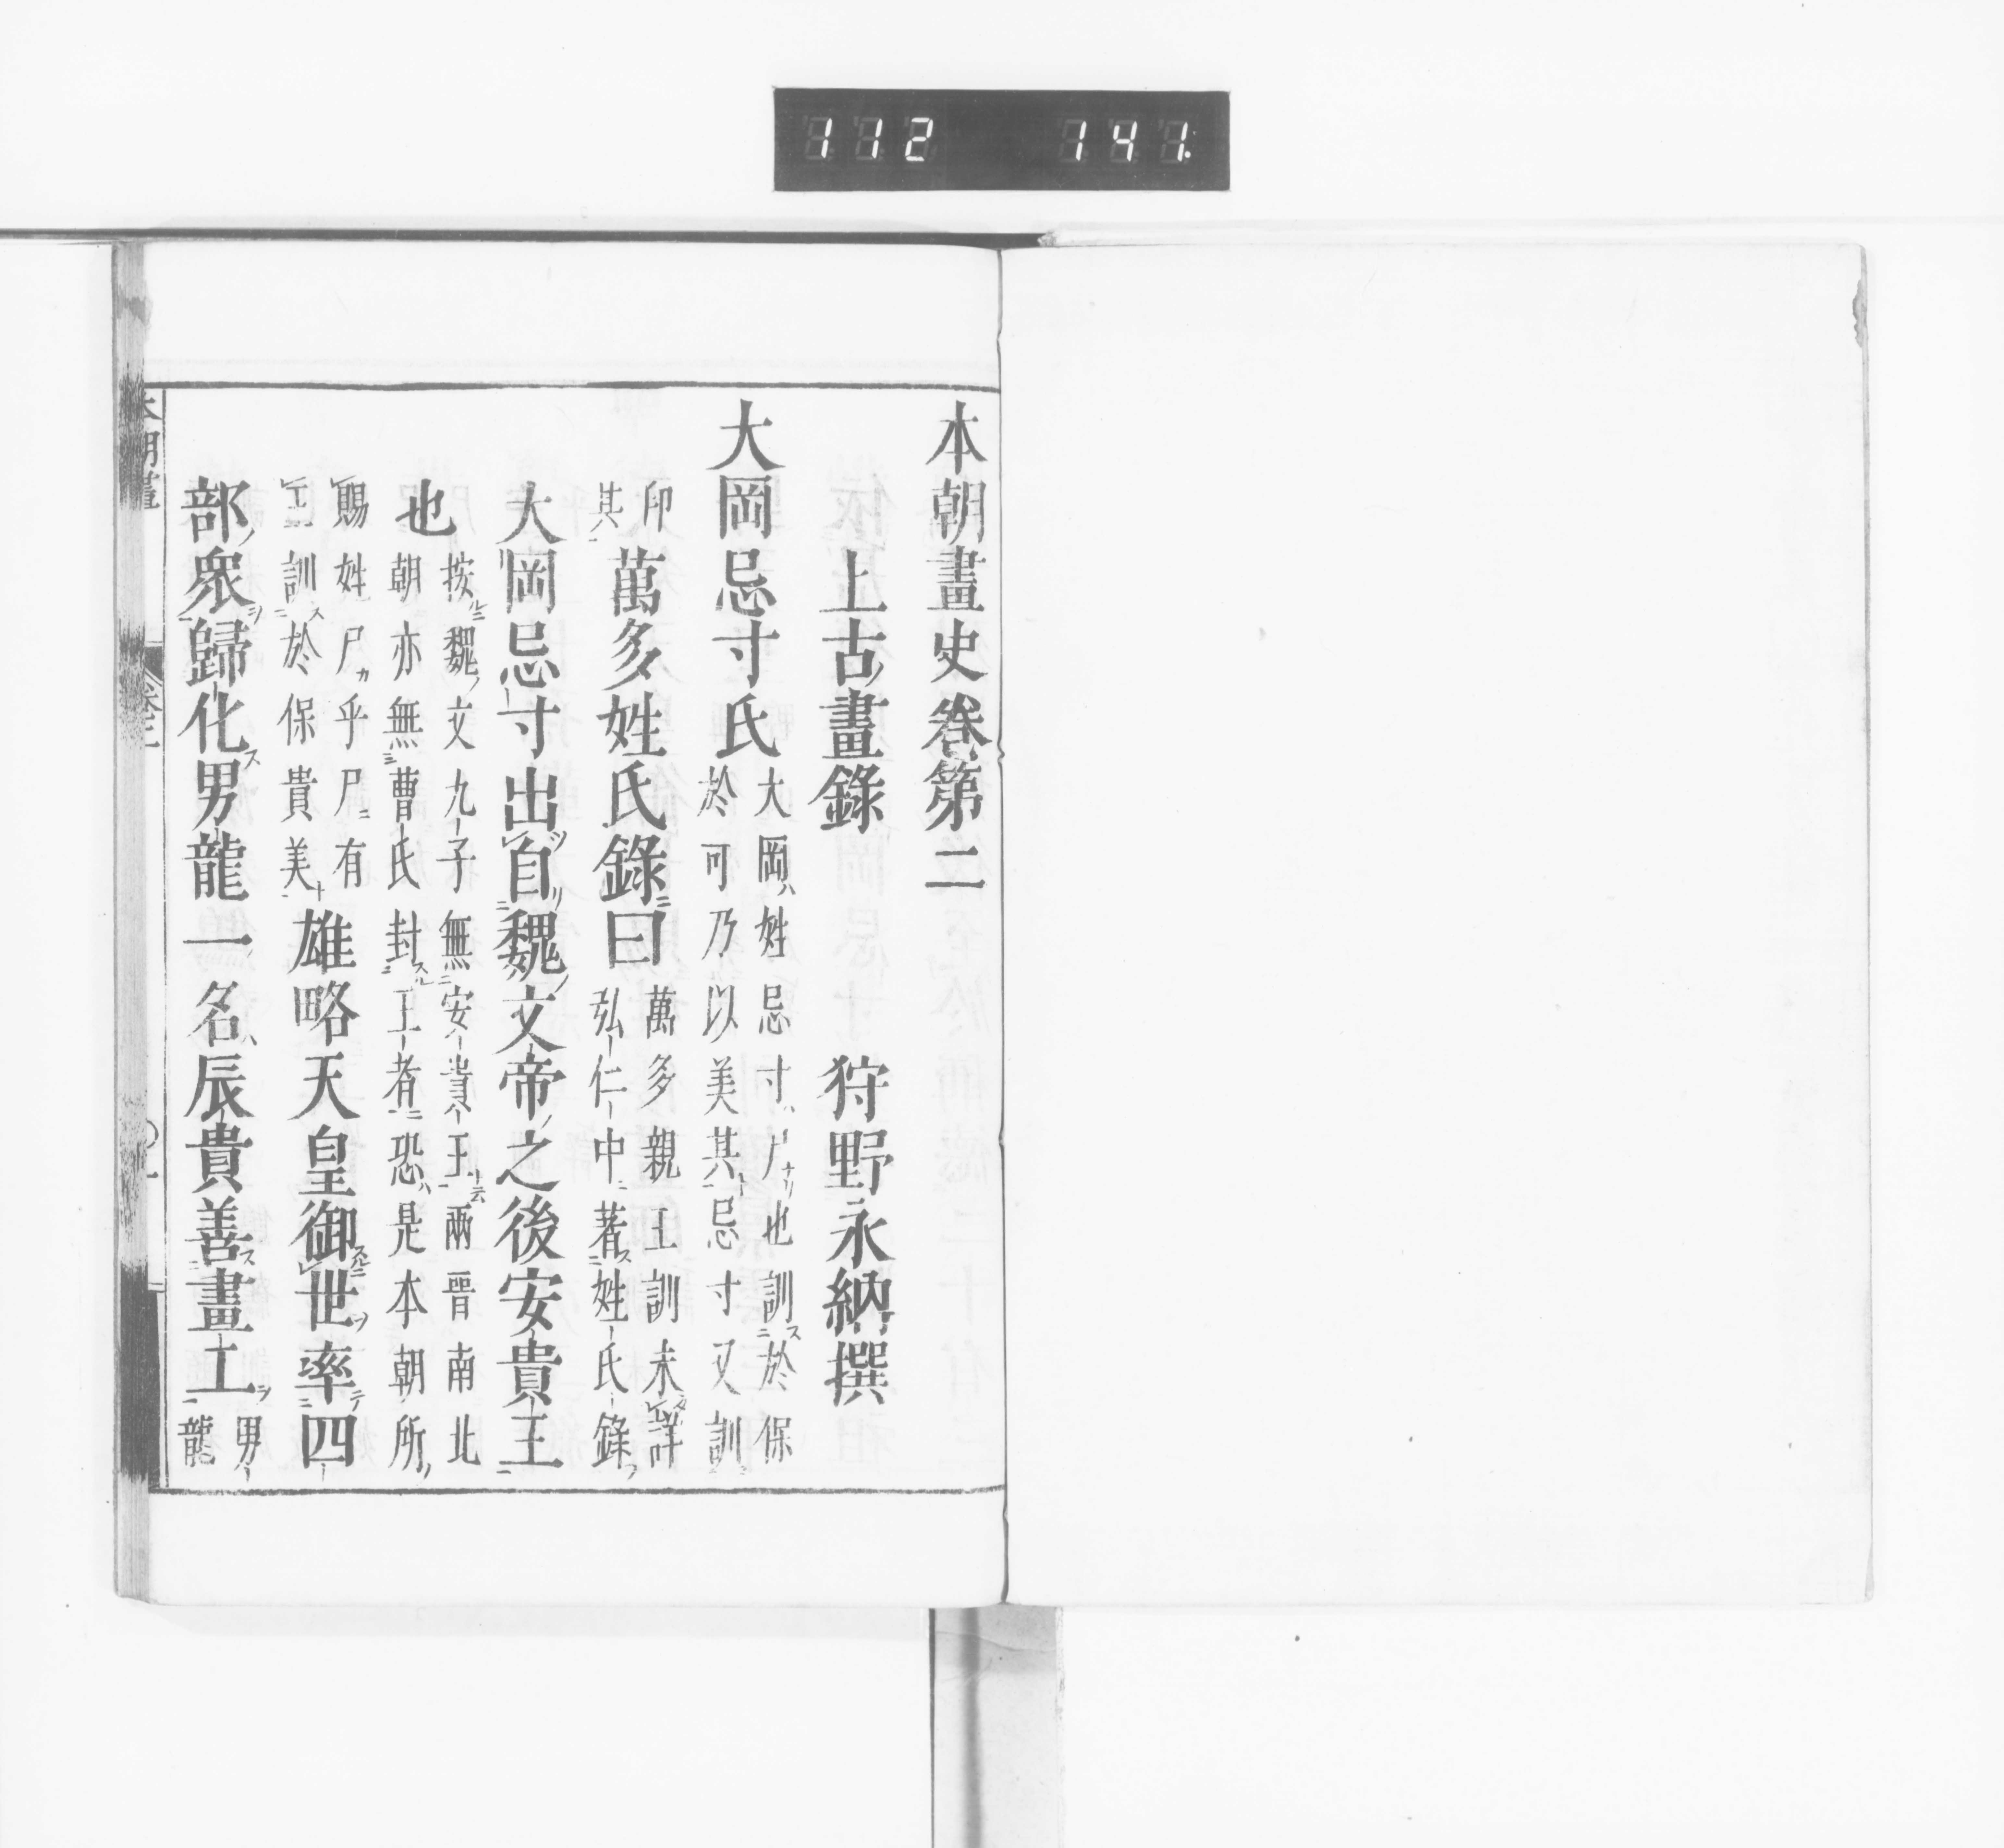 112 141
本朝畫史卷第二
上古畫錄 狩野永納撰
大岡忌寸氏 大岡姓忌寸尸也訓於保
於可乃以美其忌寸又訓
印
其
萬多姓氏錄曰 萬多親王訓未詳
弘仁中著姓氏錄
大岡忌寸出自魏文帝之後安貴王
也 按魏文九子無安貴王兩晉南北
朝亦無曹氏封王者恐是本朝所
賜姓尸乎尸有
王訓於保貴美
雄略天皇御世率四
部衆歸化男龍一名辰貴善畫工 男
龍